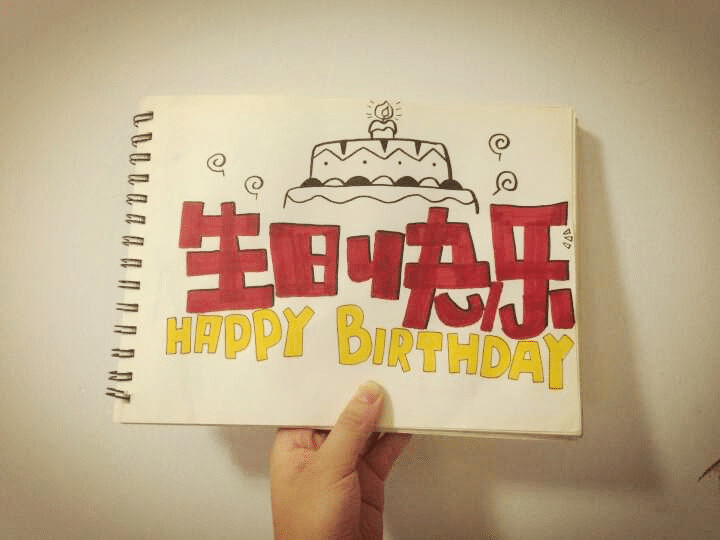 生日快乐
HAPPY BIRTHDAY